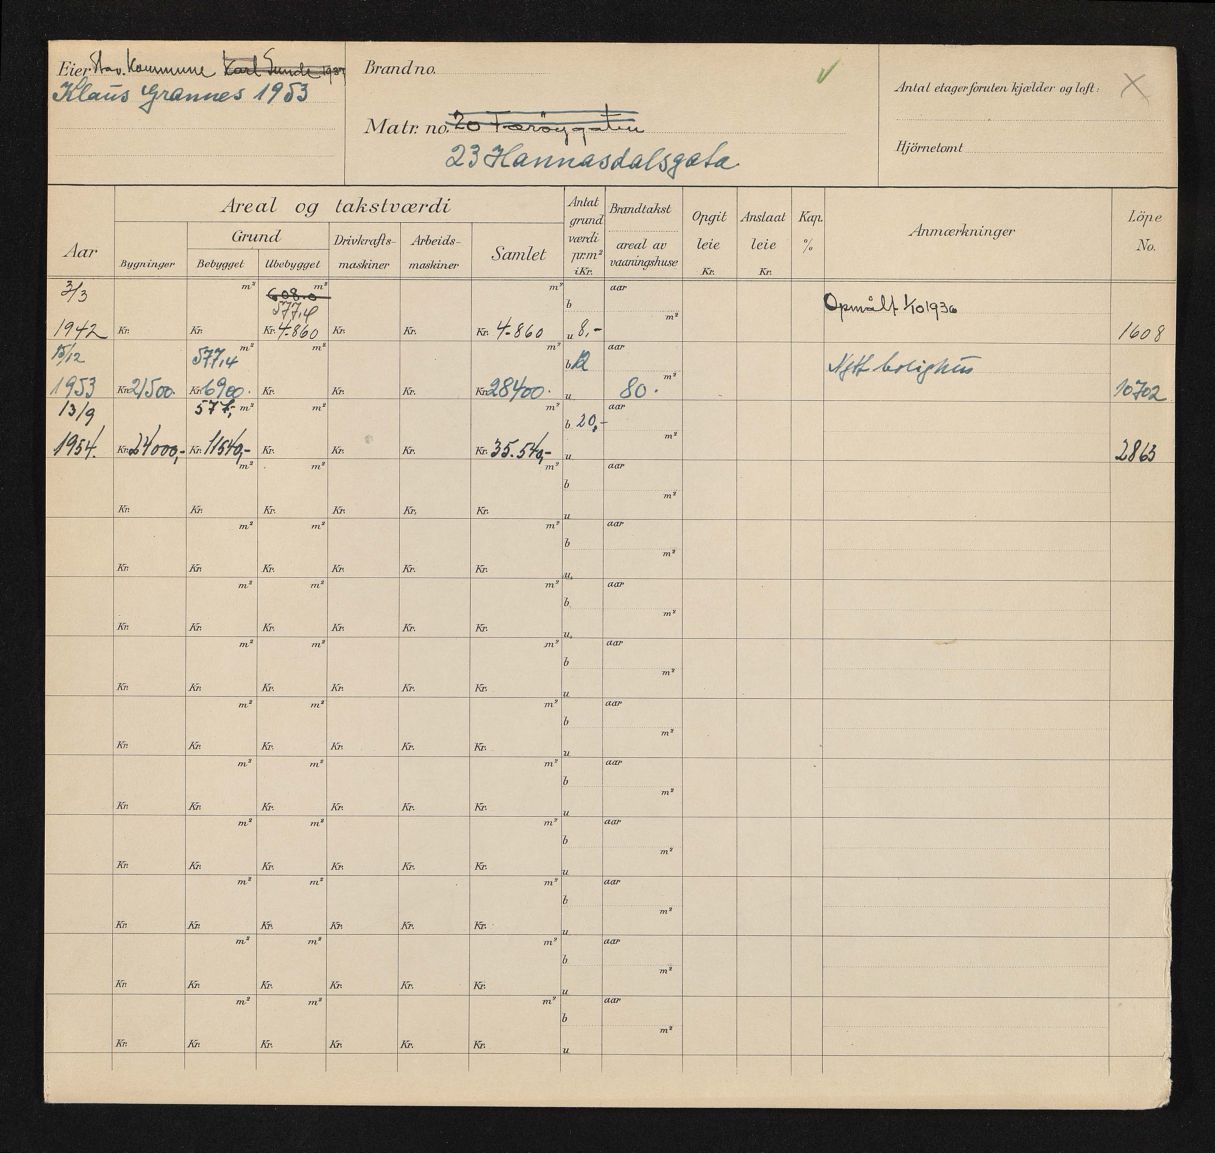 Eier Stav. Kommune Karl Sunde 1937
Klaus Grannes 1953
Brand no.
Matr. no. 20 Færöygaten
23 Hannasdalsgata
Antal etager foruten kjælder og loft: X
Hjörnetomt
Aar
Areal og takstværdi
Grund
Bygninger
Bebygget
Ubebygget
Drivkrafts-
maskiner
Arbeids-
maskiner
Samlet
Antat
grund
værdi
pr. m²
i Kr.
Brandtakst
areal av
vaaningshuse
Opgit
leie
Kr.
Anslaat
leie
Kr.
Kap.
%
Anmærkninger
Löpe
No.
3/3 m² 608.0 m² m² b aar
577,4 m² Opmålt 1/10 1936
1942 Kr. Kr. Kr. 4.860 Kr. Kr. Kr. 4.860 u 8,- 1608
15/12 577,4 m² m² m² b 12 aar m² Nytt bolighus
1953 Kr. 21500. Kr. 6900. Kr. Kr. Kr. Kr. 28400. u 80. 10702
13/9 577,- m² m² m² b 20,- aar m²
1954. Kr. 24000,- Kr. 11540,- Kr. Kr. Kr. Kr. 35.540,- u 2863
m² m² m² b aar m²
Kr. Kr. Kr. Kr. Kr. Kr. u
m² m² m² b aar m²
Kr. Kr. Kr. Kr. Kr. Kr. u
m² m² m² b aar m²
Kr. Kr. Kr. Kr. Kr. Kr. u
m² m² m² b aar m²
Kr. Kr. Kr. Kr. Kr. Kr. u
m² m² m² b aar m²
Kr. Kr. Kr. Kr. Kr. Kr. u
m² m² m² b aar m²
Kr. Kr. Kr. Kr. Kr. Kr. u
m² m² m² b aar m²
Kr. Kr. Kr. Kr. Kr. Kr. u
m² m² m² b aar m²
Kr. Kr. Kr. Kr. Kr. Kr. u
m² m² m² b aar m²
Kr. Kr. Kr. Kr. Kr. Kr. u
m² m² m² b aar m²
Kr. Kr. Kr. Kr. Kr. Kr. u